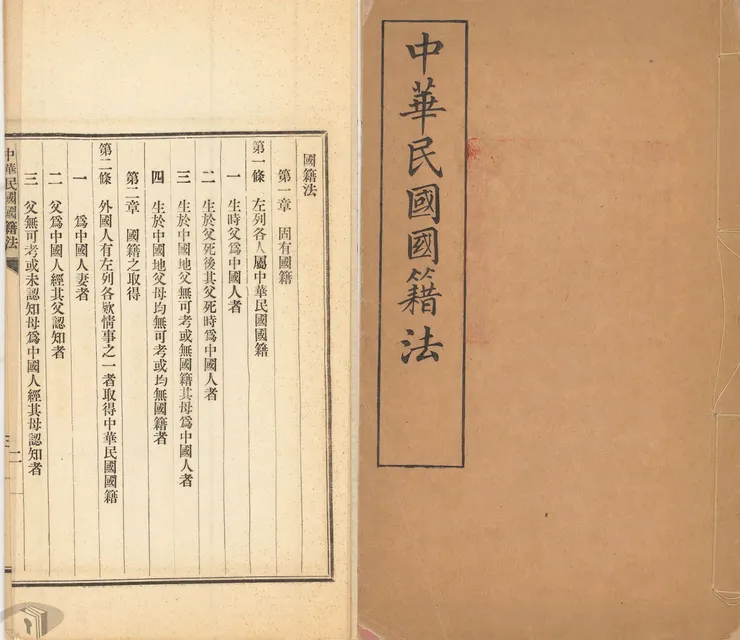 中華民國國籍法
國籍法
第一章　固有國籍
第一條　左列各人屬中華民國國籍
一　生時父爲中國人者
二　生於父死後其父死時爲中國人者
三　生於中國地父無可考或無國籍其母爲中國人者
四　生於中國地父母均無可考或均無國籍者
第二章　國籍之取得
第二條　外國人有左列各欵情事之一者取得中華民國國籍
一　爲中國人妻者
二　父爲中國人經其父認知者
三　父無可考或未認知母爲中國人經其母認知者
中華民國國籍法
二